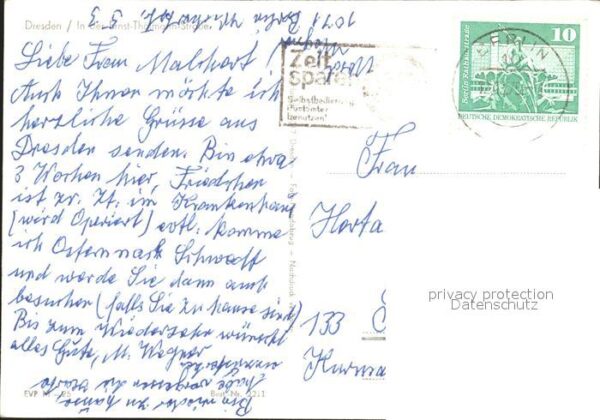 Dresden / In der Ernst-Thälmann-Straße
Liebe Frau Malchart!
Auch Ihnen möchte ich
herzliche Grüsse aus
Dresden senden. Bin etwa
3 Wochen hier, Friedchen
ist zr. Zt. im Krankenhaus
(wird Operiert) evtl. komme
ich Ostern nach Schwedt
und werde Sie dann auch
besuchen (falls Sie zu hause sind)
Bis zum Wiedersehn wünscht
alles Gute, M. Wegner
Bin wieder zu hause
habe vergessen die Karte
1071 Berlin
3 3
Zeit
sparen
Selbstbedienung
Postämter
benutzen
BERLIN
10
Berlin-Rathausstrasse
DEUTSCHE DEMOKRATISCHE REPUBLIK
Frau
Herta
133
privacy protection
Datenschutz
EVP
Best.-Nr.